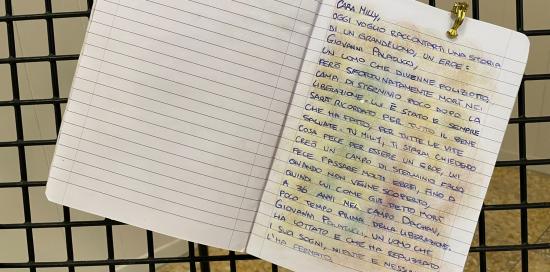 CARA MILLY,
OGGI VOGLIO RACCONTARTI UNA STORIA
DI UN GRANDE UOMO, UN EROE:
GIOVANNI PALATUCCI,
UN UOMO CHE DIVENNE POLIZIOTTO,
PERÒ SFORTUNATAMENTE MORÌ NEI
CAMPI DI STERMINIO POCO DOPO LA
LIBERAZIONE. LUI È STATO E SEMPRE
SARÀ RICORDATO PER TUTTO IL BENE
CHE HA FATTO, PER TUTTE LE VITE
SALVATE. TU MILLY, TI STARAI CHIEDENDO
COSA FECE PER ESSERE UN EROE, LUI
CREÒ UN CAMPO DI STERMINIO FALSO
FECE PASSARE MOLTI EBREI, FINO A
QUANDO NON VENNE SCOPERTO,
QUINDI LUI COME GIÀ DETTO MORÌ
A 36 ANNI NEL CAMPO DACHAU,
POCO TEMPO PRIMA DELLA LIBERAZIONE.
GIOVANNI PALATUCCI, UN UOMO CHE
HA LOTTATO E CHE HA REALIZZATO
I SUOI SOGNI, NIENTE E NESSUNO
L'HA FERMATO